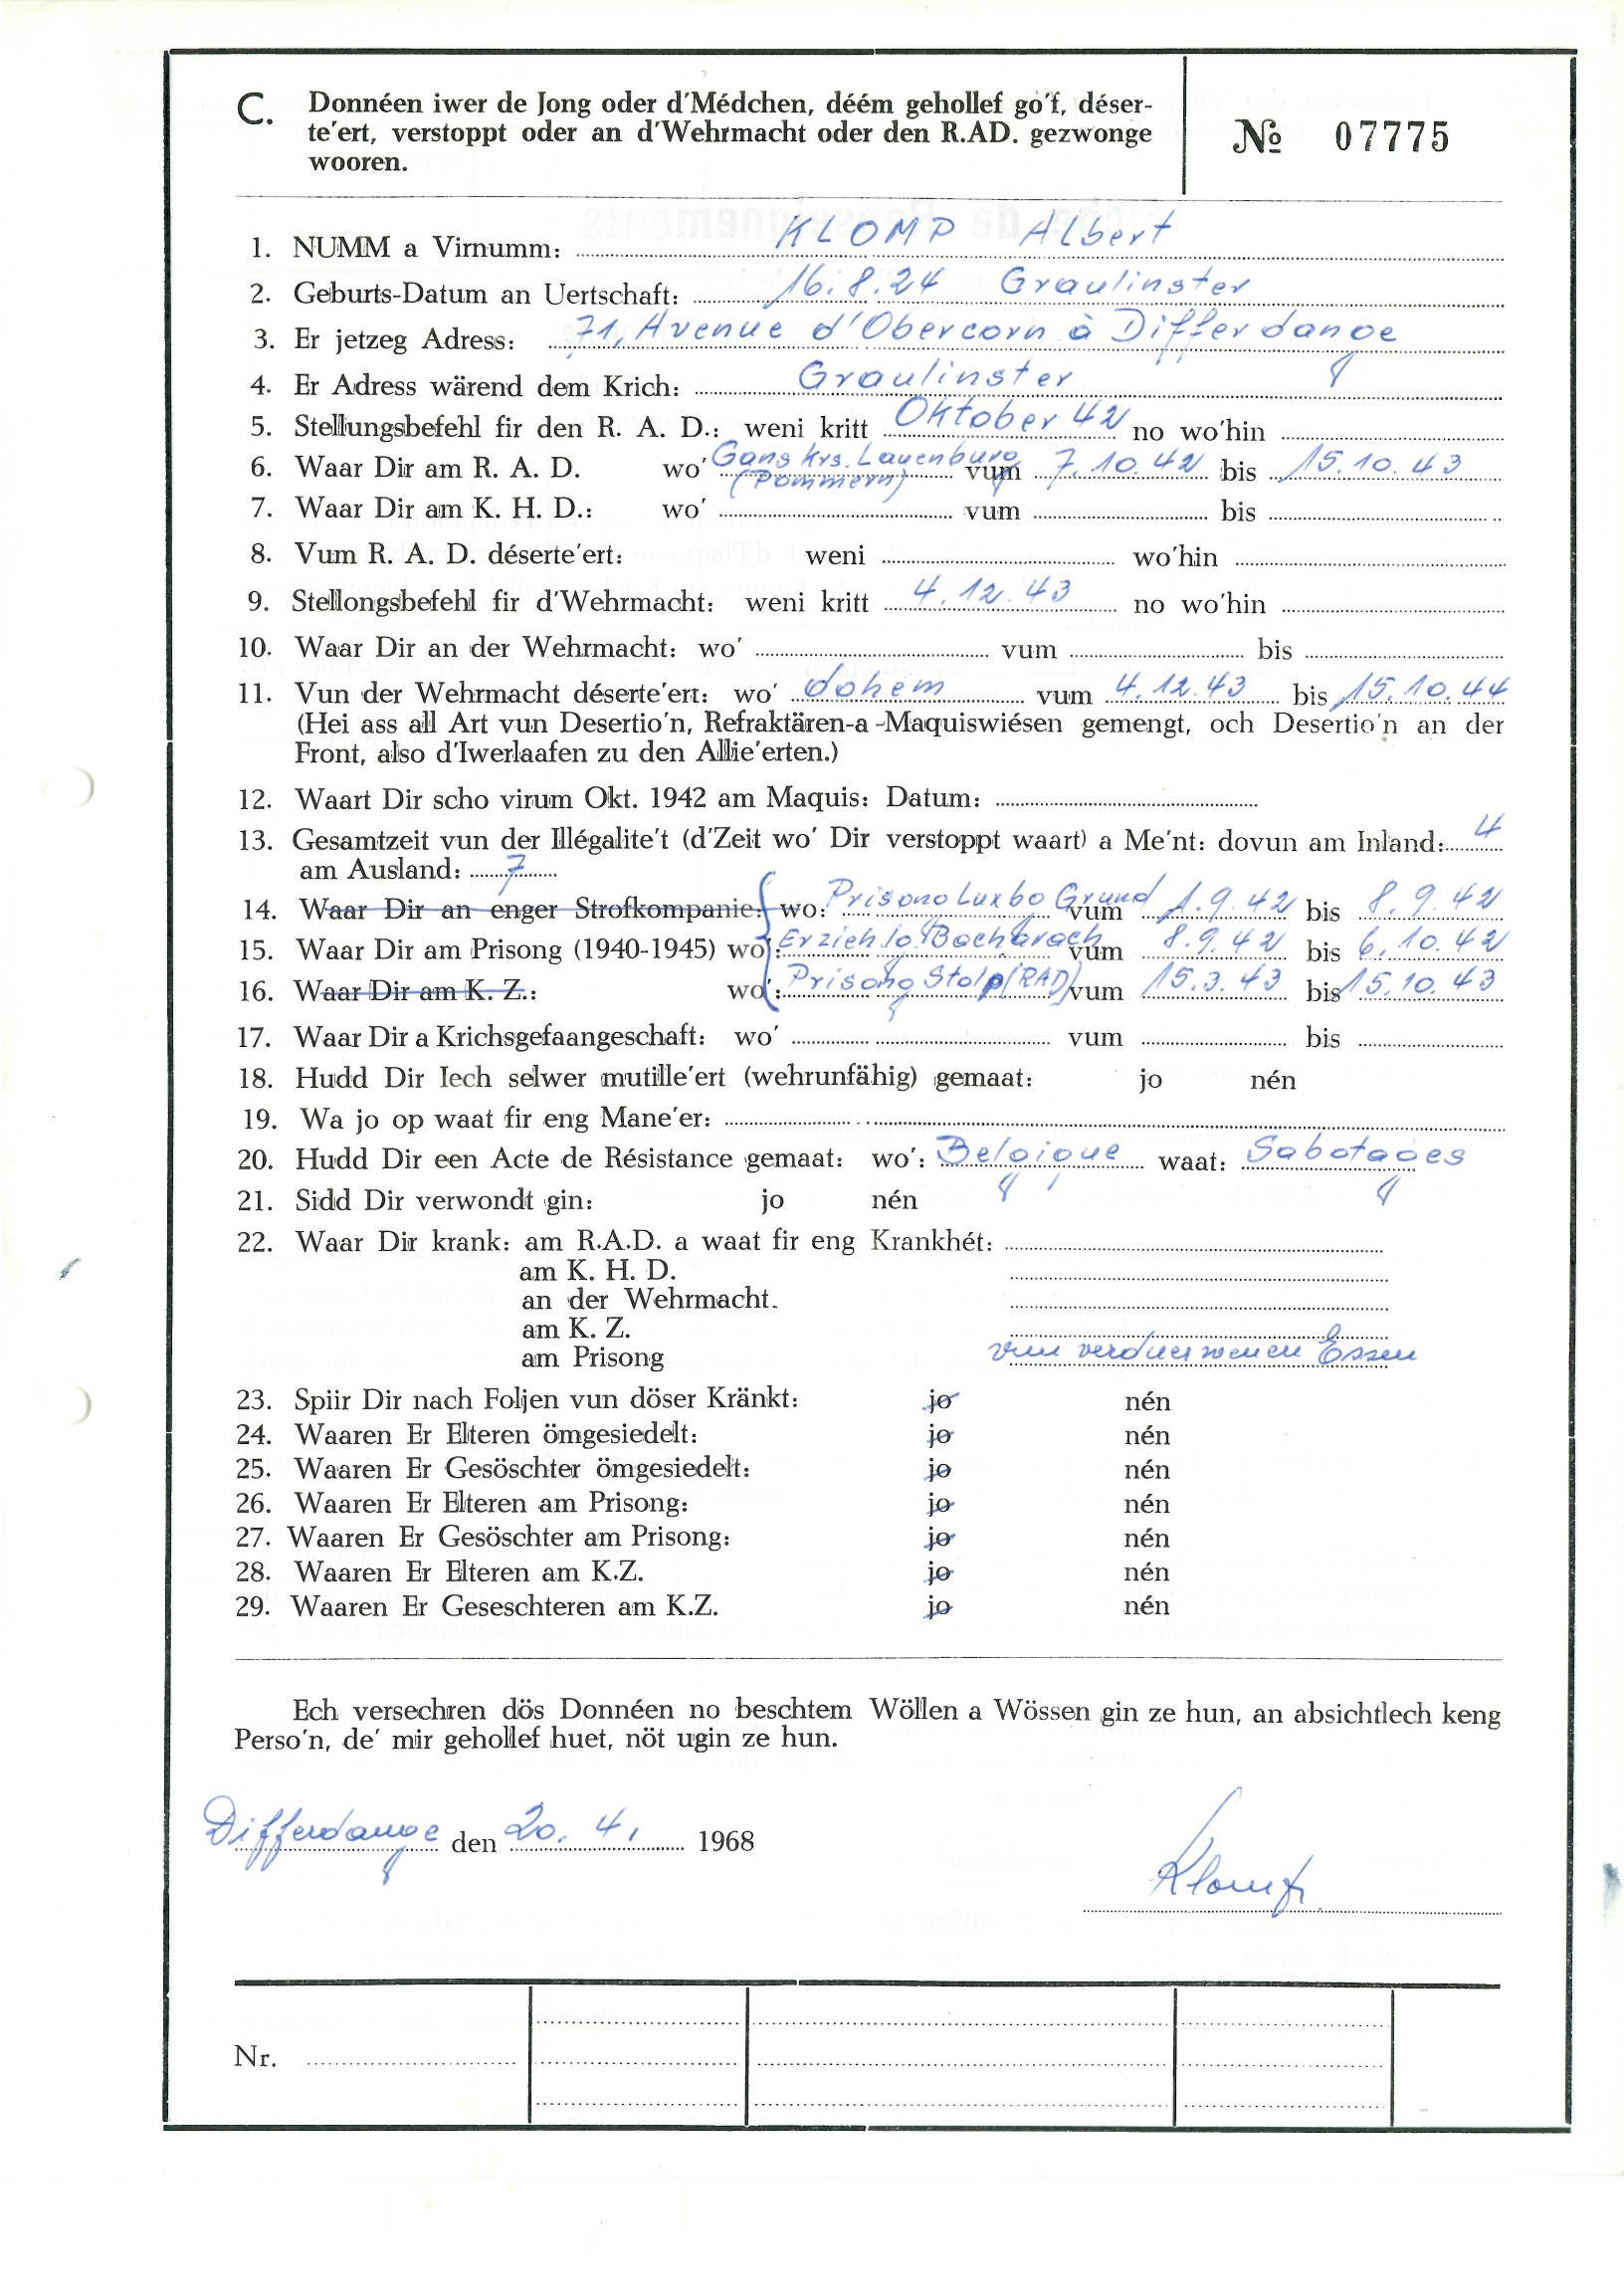 C. Donnéen iwer de Jong oder d'Médchen, déém gehollef go'f, déser-
te'ert, verstoppt oder an d'Wehrmacht oder den R.AD. gezwonge
wooren.
№ 07775
1. NUMM a Virnumm: KLOMP Albert
2. Geburts-Datum an Uertschaft: 16.8.24 Graulinster
3. Er jetzeg Adress: 71, Avenue d'Obercorn à Differdange
4. Er Adress wärend dem Krich: Graulinster
5. Stellungsbefehl fir den R. A. D.: weni kritt Oktober 42 no wo'hin
6. Waar Dir am R. A. D. wo' Gans Krs. Lauenburg (Pommern) vum 7.10.42 bis 15.10.43
7. Waar Dir am K. H. D.: wo' vum bis
8. Vum R. A. D. déserte'ert: weni wo'hin
9. Stellongsbefehl fir d'Wehrmacht: weni kritt 4.12.43 no wo'hin
10. Waar Dir an der Wehrmacht: wo' vum bis
11. Vun der Wehrmacht déserte'ert: wo' dohem vum 4.12.43 bis 15.10.44
(Hei ass all Art vun Desertio'n, Refraktären-a-Maquiswiésen gemengt, och Desertio'n an der
Front, also d'Iwerlaafen zu den Allie'erten.)
12. Waart Dir scho virum Okt. 1942 am Maquis: Datum:
13. Gesamtzeit vun der Illégalite't (d'Zeit wo' Dir verstoppt waart) a Me'nt: dovun am Inland: 4
am Ausland: 7
14. Waar Dir an enger Strofkompanie: wo: Prisono Luxbo Grund vum 1.9.42 bis 8.9.42
15. Waar Dir am Prisong (1940-1945) wo': Erzieh.lg. Bacharach vum 8.9.42 bis 6.10.42
16. Waar Dir am K. Z.: wo': Prisong Stolp (RAD) vum 15.3.43 bis 15.10.43
17. Waar Dir a Krichsgefaangeschaft: wo' vum bis
18. Hudd Dir Iech selwer mutille'ert (wehrunfähig) gemaat: jo nén
19. Wa jo op waat fir eng Mane'er:
20. Hudd Dir een Acte de Résistance gemaat: wo': Belgique waat: Sabotages
21. Sidd Dir verwondt gin: jo nén
22. Waar Dir krank: am R.A.D. a waat fir eng Krankhét:
am K. H. D.
an der Wehrmacht.
am K. Z.
am Prisong vum verduerwenen Essen
23. Spiir Dir nach Foljen vun döser Kränkt: jo nén
24. Waaren Er Elteren ömgesiedelt: jo nén
25. Waaren Er Gesöschter ömgesiedelt: jo nén
26. Waaren Er Elteren am Prisong: jo nén
27. Waaren Er Gesöschter am Prisong: jo nén
28. Waaren Er Elteren am K.Z. jo nén
29. Waaren Er Geseschteren am K.Z. jo nén
Ech versechren dös Donnéen no beschtem Wöllen a Wössen gin ze hun, an absichtlech keng
Perso'n, de' mir gehollef huet, nöt ugin ze hun.
Differdange den 20. 4. 1968
Klomp
Nr.